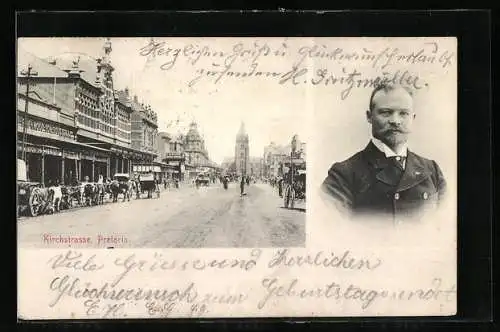 Herzlichen Gruß u Glückwunsch erlaubt
zusenden H. Gritzmüller
Kirchstrasse Pretoria
Viele Grüsse und Herzlichen
Glückwunsch zum Geburtstag